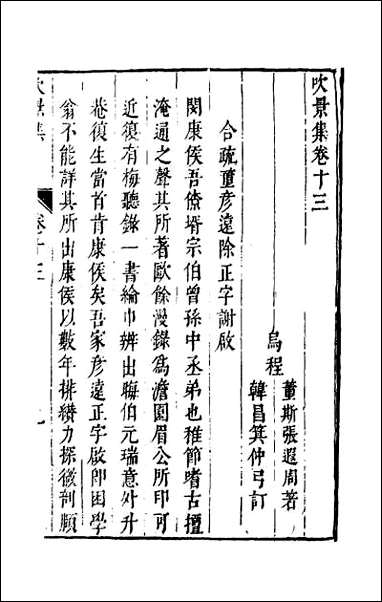 吹景集卷十三
烏程
董斯張遐周著
韓昌箕仲弓訂
合疏董彥遠除正字謝啟
閔康侯吾儕壻宗伯曾孫中丞弟也稚節嗜古擅
淹通之聲其所著歐餘漫錄為澹園眉公所印可
近復有梅聽錄一書綸巾辨出晦伯元瑞意外升
菴復生當首肯康侯矣吾家彥遠正字啟即困學
翁不能詳其所出康侯以數年排纘力探微剖賾
吹景集
卷十三